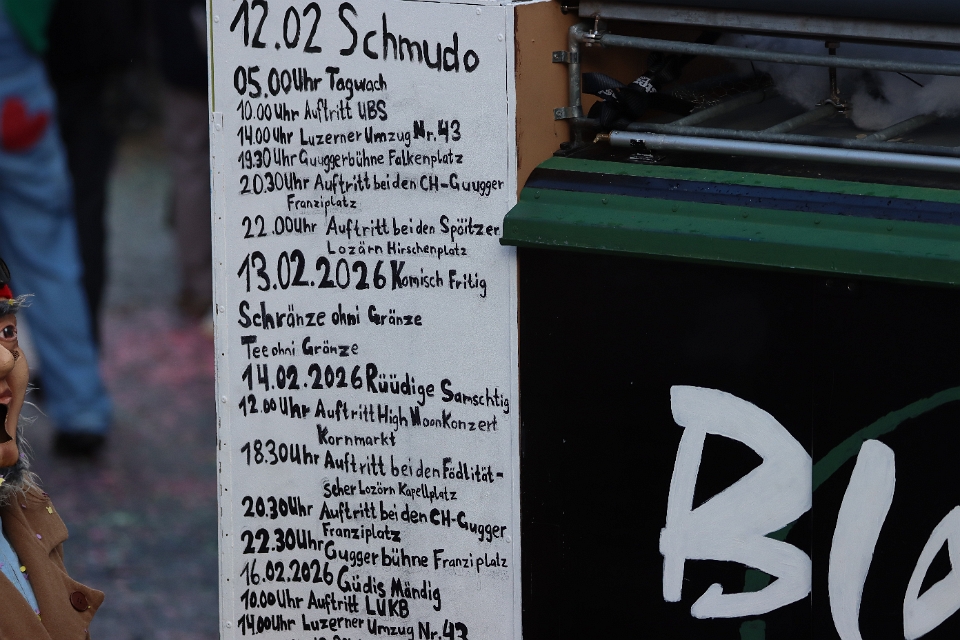 12.02 Schmudo
05.00Uhr Tagwach
10.00 Uhr Auftritt UBS
14.00 Uhr Luzerner Umzug Nr. 43
19.30 Uhr Guuggerbühne Falkenplatz
20.30Uhr Auftritt bei den CH-Guugger
Franziplatz
22.00Uhr Auftritt bei den Spöitzer
Lozärn Hirschenplatz
13.02.2026 Komisch Fritig
Schränze ohni Gränze
Tee ohni Gränze
14.02.2026 Rüüdige Samschtig
12.00 Uhr Auftritt High Moon Konzert
Kornmarkt
18.30Uhr Auftritt bei den Födlität-
scher Lozörn Kapellplatz
20.30Uhr Auftritt bei den CH-Gugger
Franziplatz
22.30Uhr Gugger bühne Franziplatz
16.02.2026 Güdis Mändig
10.00 Uhr Auftritt LUKB
14.00Uhr Luzerner Umzug Nr. 43
Blo